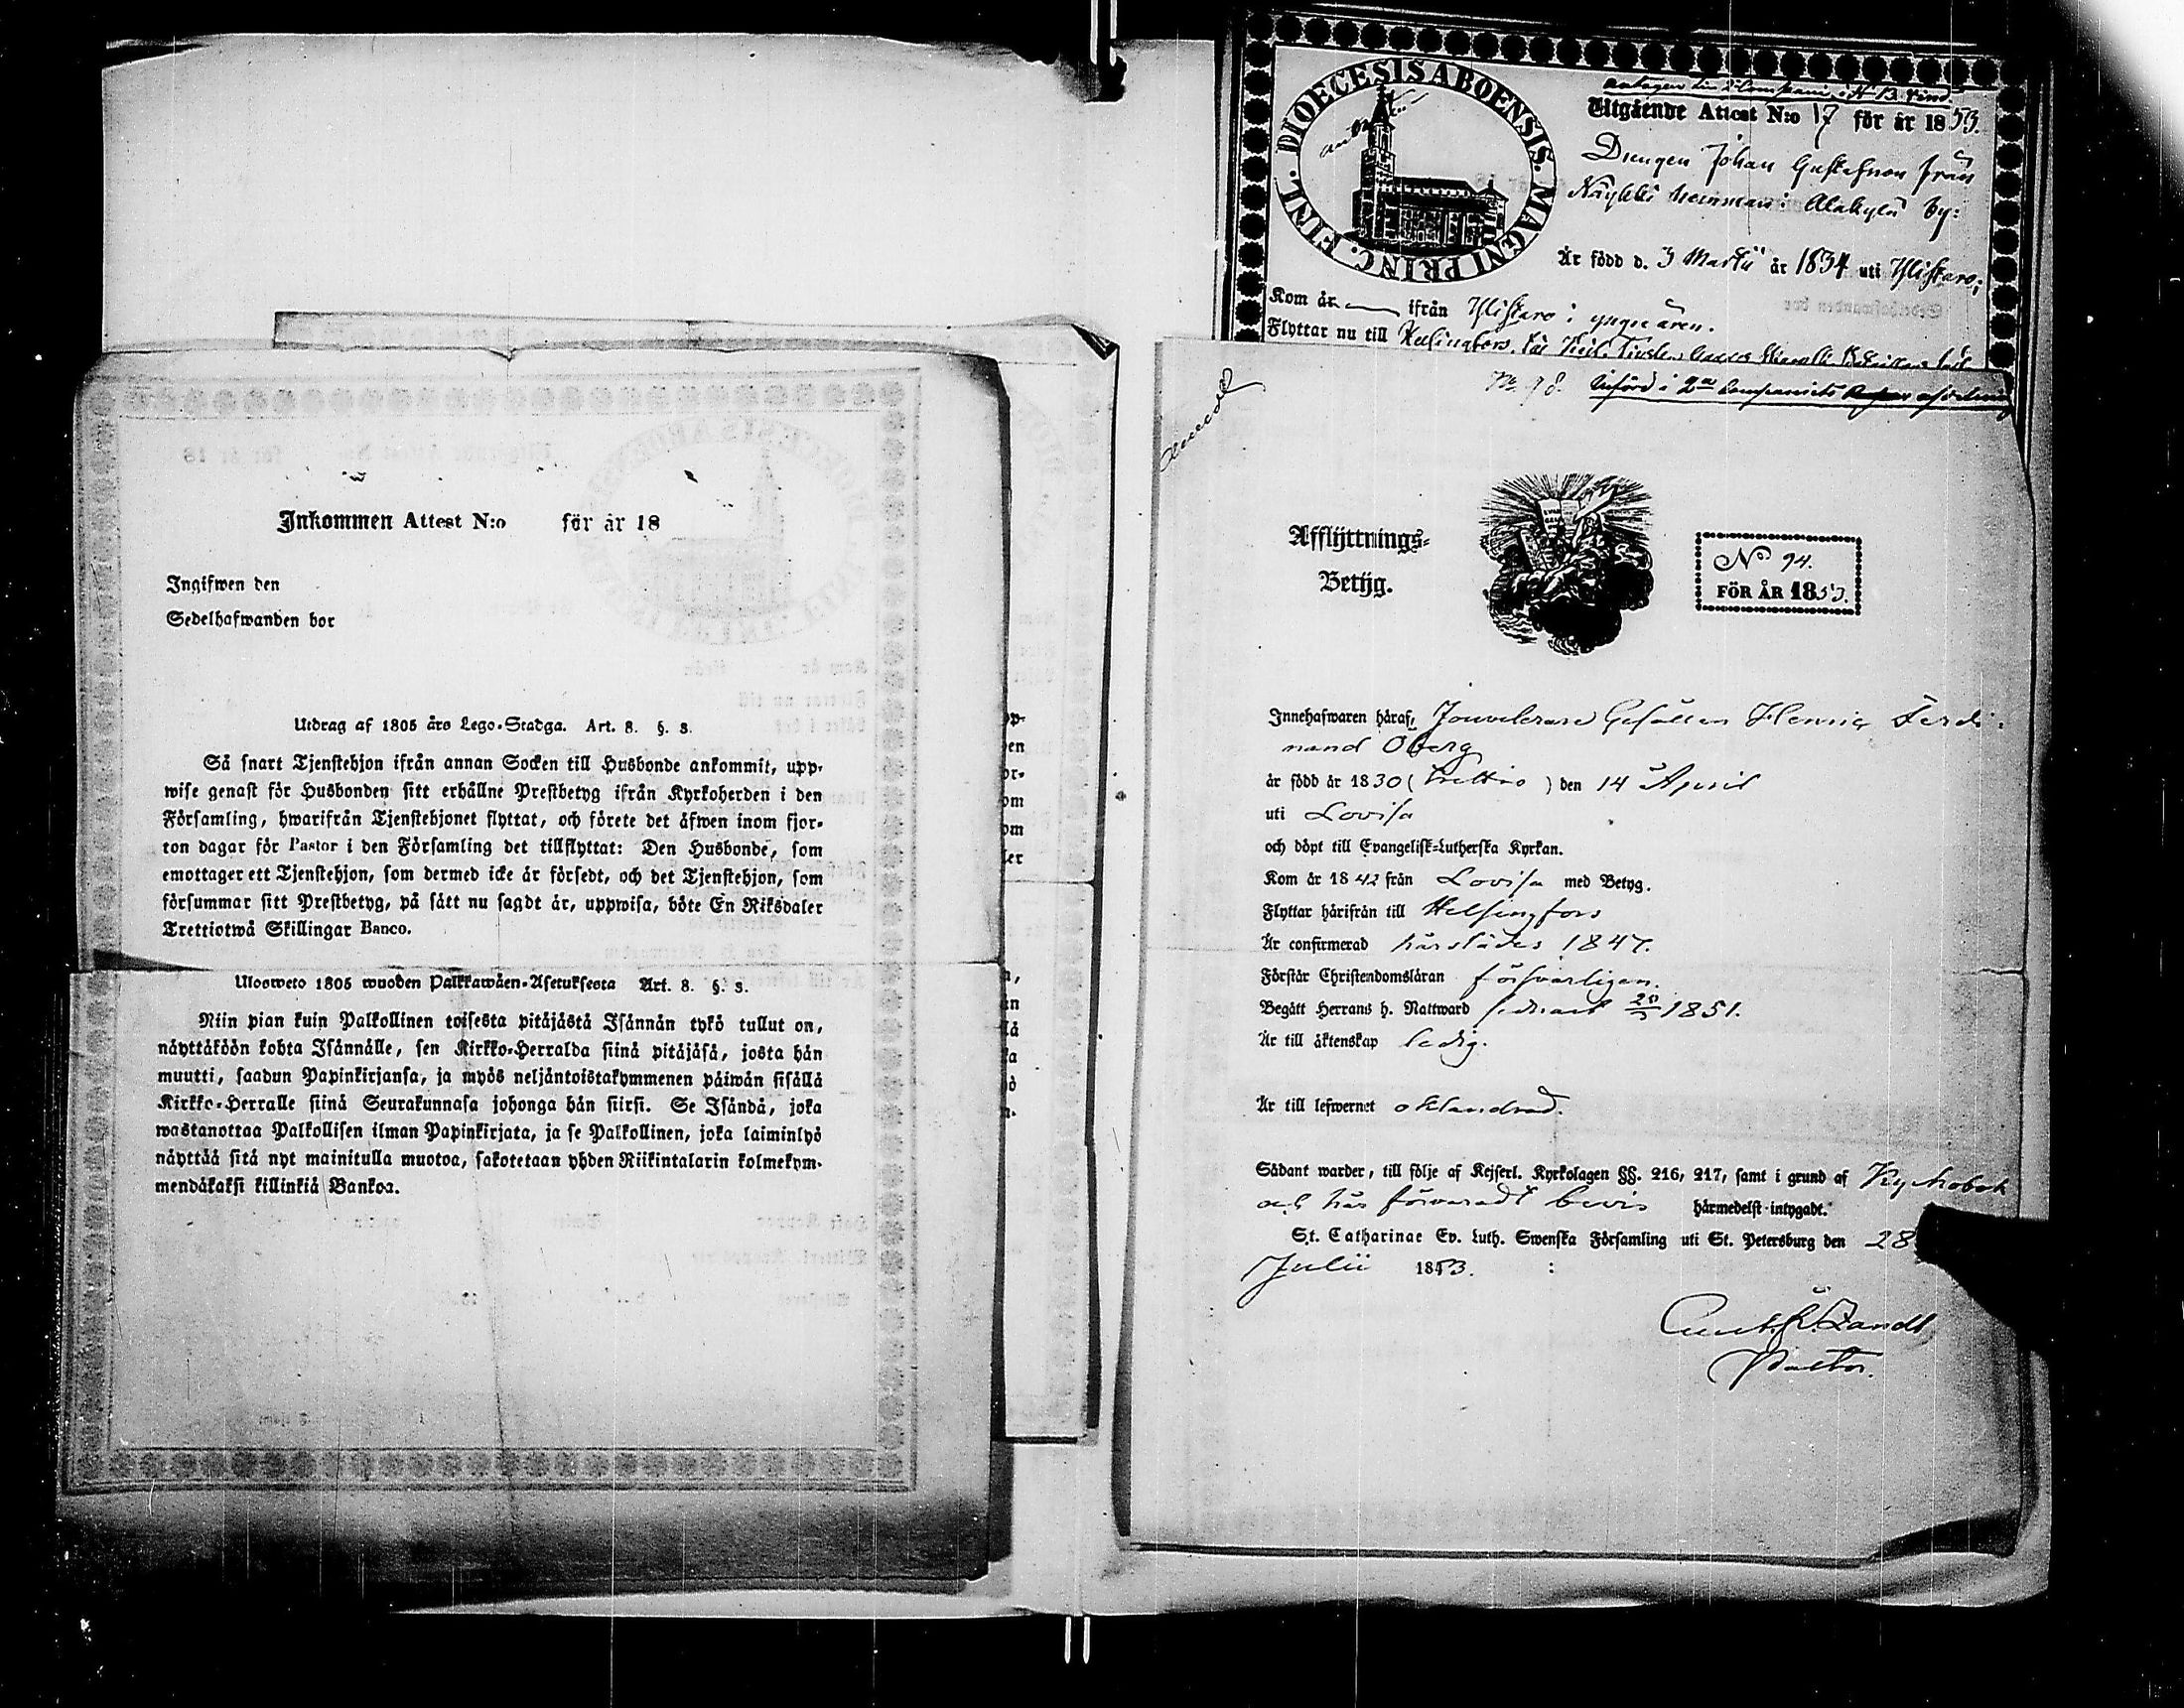 Inkommen Attest N:o för år 18
Ingifwen den
Sedelhafwanden bor
Utdrag af 1805 års Lego-Stadga. Art. 8. §. 3.
Så snart Tjenstehjon ifrån annan Socken till Husbonde ankommit, upp-
wise genast för Husbonden sitt erhållne Prestbetyg ifrån Kyrkoherden i den
Församling, hwarifrån Tjenstehjonet flyttat, och förete det äfwen inom fjor-
ton dagar för Pastor i den Församling det tillflyttat: Den Husbonde, som
emottager ett Tjenstehjon, som dermed icke är försedt, och det Tjenstehjon, som
försummar sitt Prestbetyg, på sätt nu sagdt är, uppwisa, böte En Riksdaler
Trettiotwå Skillingar Banco.
Ulosweto 1805 wuoden Palkkawäen-Asetuksesta Art. 8. §. 3.
Niin pian kuin Palkollinen toisesta pitäjästä Isännän tykö tullut on,
näyttäköön kohta Isännälle, sen Kirkko-Herralda siinä pitäjäsä, josta hän
muutti, saadun Papinkirjansa, ja myös neljäntoistakymmenen päiwän sisällä
Kirkko-Herralle siinä Seurakunnasa johonga hän siirsi. Se Isändä, joka
wastanottaa Palkollisen ilman Papinkirjata, ja se Palkollinen, joka laiminlyö
näyttää sitä nyt mainitulla muotoa, sakotetaan yhden Riikintalarin kolmekym-
mendäkaksi killinkiä Bankoa.
DIOECESIS ABOENSIS. MAGNI PRINC. FINL.
antagen 2 Compani
Utgående Attest N:o 17 för år 1853.
Drengen Johan Gustafsson från
Näykki hemman i Alakylä by:
Är född d. 3 Martii år 1834 uti Ylistaro;
Kom år — ifrån Ylistaro i yngre åren.
Flyttar nu till Helsingfors
N:o 98. Införd i 2a Compagniets
Afflyttnings-
Betyg.
No 94.
FÖR ÅR 1853.
Innehafwaren häraf, Jouvelerare Gesällen Henric Ferdi-
nand Öberg
är född år 1830 (trettio) den 14 April
uti Lovisa
och döpt till Evangelisk-Lutherska Kyrkan.
Kom år 1842 från Lovisa med Betyg.
Flyttar härifrån till Helsingfors
Är confirmerad härstädes 1847.
Förstår Christendomsläran försvarligen.
Begått Herrans h. Nattward sednast 1851.
Är till äktenskap ledig.
Är till lefwernet oklandrad.
Sådant warder, till följe af Kejserl. Kyrkolagen §§. 216, 217, samt i grund af Kyrkobok
och här förvaradt bevis härmedelst intygadt.
St. Catharinae Ev. Luth. Swenska Församling uti St. Petersburg den 28
Julii 1853.
Zandt
Pastor.